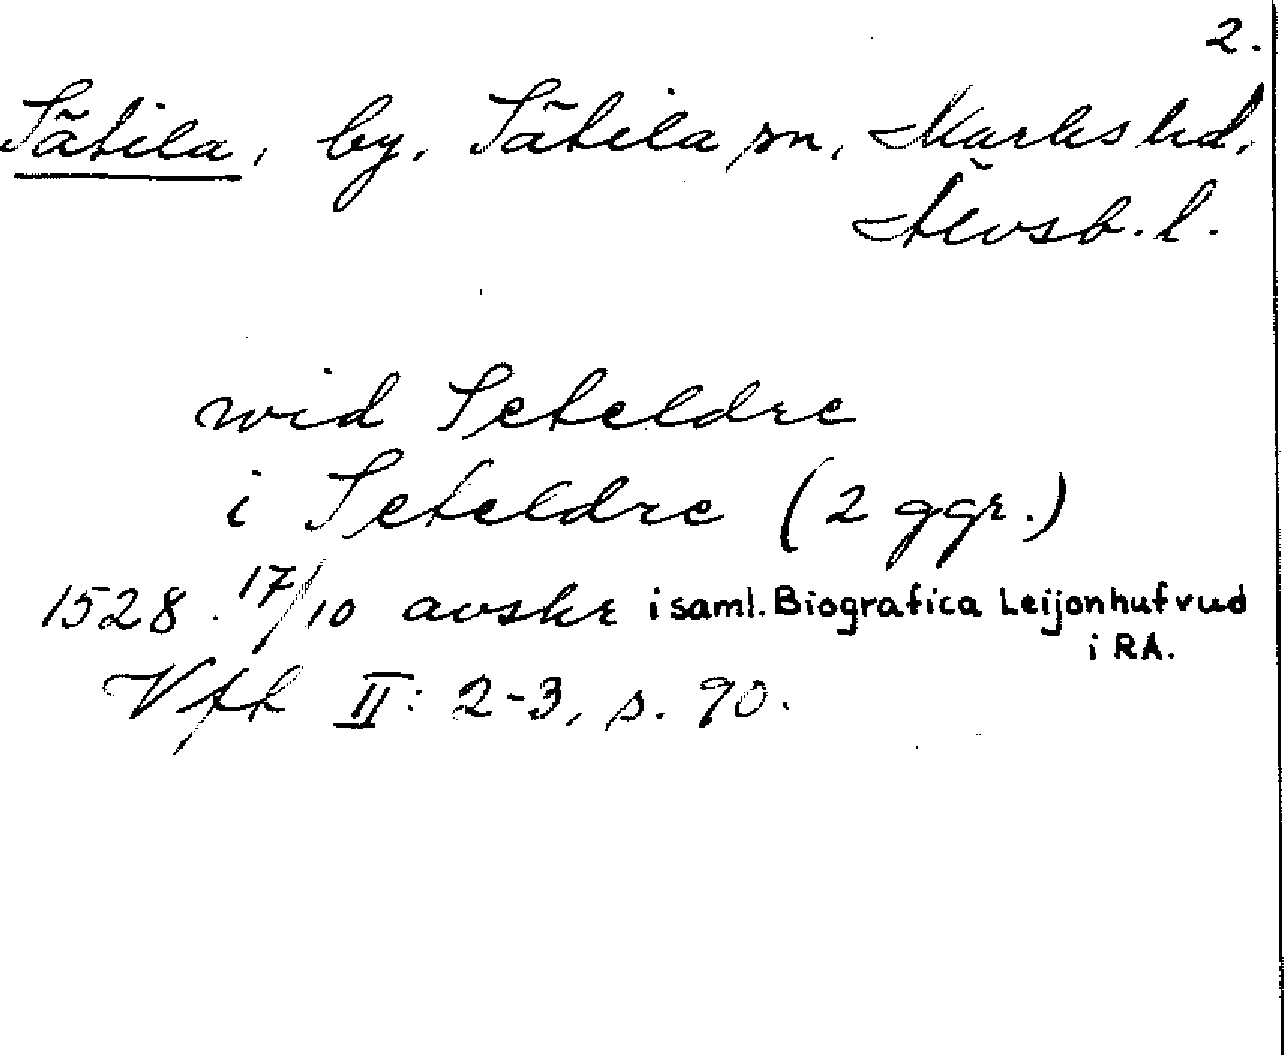 2.
Sätila, by, Sätila sn, Marks hd,
Älvsb. l.
wid Seteldre
i Seteldre (2 ggr.)
1528. 17/10 avskr i saml. Biografica Leijonhufvud
i RA.
Vfk II: 2-3, s. 90.